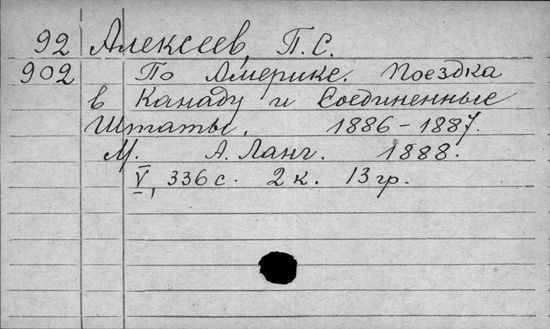 92 Алексеев, П.С.
902 По Америке. Поездка
в Канаду и Соединенные
Штаты. 1886-1887.
М. А. Ланг. 1888.
V, 336 с. 2 к. 13 гр.